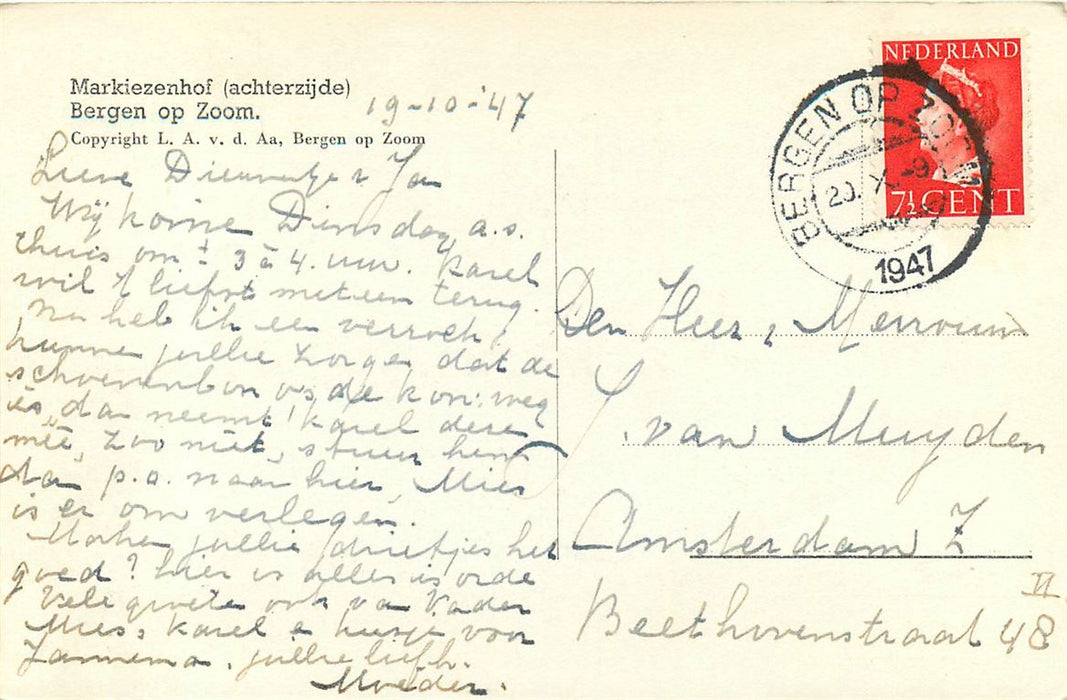 Markiezenhof (achterzijde)
Bergen op Zoom.
Copyright L. A. v. d. Aa, Bergen op Zoom
19-10-'47
Lieve Dieuwertje & Jan
Wij kome Dinsdag a.s.
thuis om ± 3 à 4. uur. Karel
wil 't liefst meteen terug.
Nu heb ik een verzoek,
kunne jullie zorge dat de
schoenenbon v/s de kon: weg
is, dan neemt Karel deze
mee, zoo niet, stuur hem
dan p.o. naar hier, Mies
is er om verlegen.
Maken jullie drietjes het
goed? hier is alles is orde
Vele groete ook va Vader
Mies, Karel e kusje voor
jullie liefh.
Moeder.
NEDERLAND
7½ CENT
BERGEN OP ZOOM
20. X. -9
1947
Den Heer, Mevrouw
J. van Muyden
Amsterdam Z
VI
Beethovenstraat 48